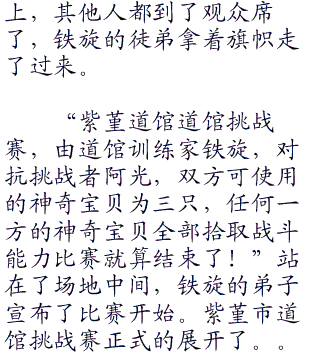 上，其他人都到了观众席
了，铁旋的徒弟拿着旗帜走
了过来。
“紫堇道馆道馆挑战
赛，由道馆训练家铁旋，对
抗挑战者阿光，双方可使用
的神奇宝贝为三只，任何一
方的神奇宝贝全部拾取战斗
能力比赛就算结束了！”站
在了场地中间，铁旋的弟子
宣布了比赛开始。紫堇市道
馆挑战赛正式的展开了。。